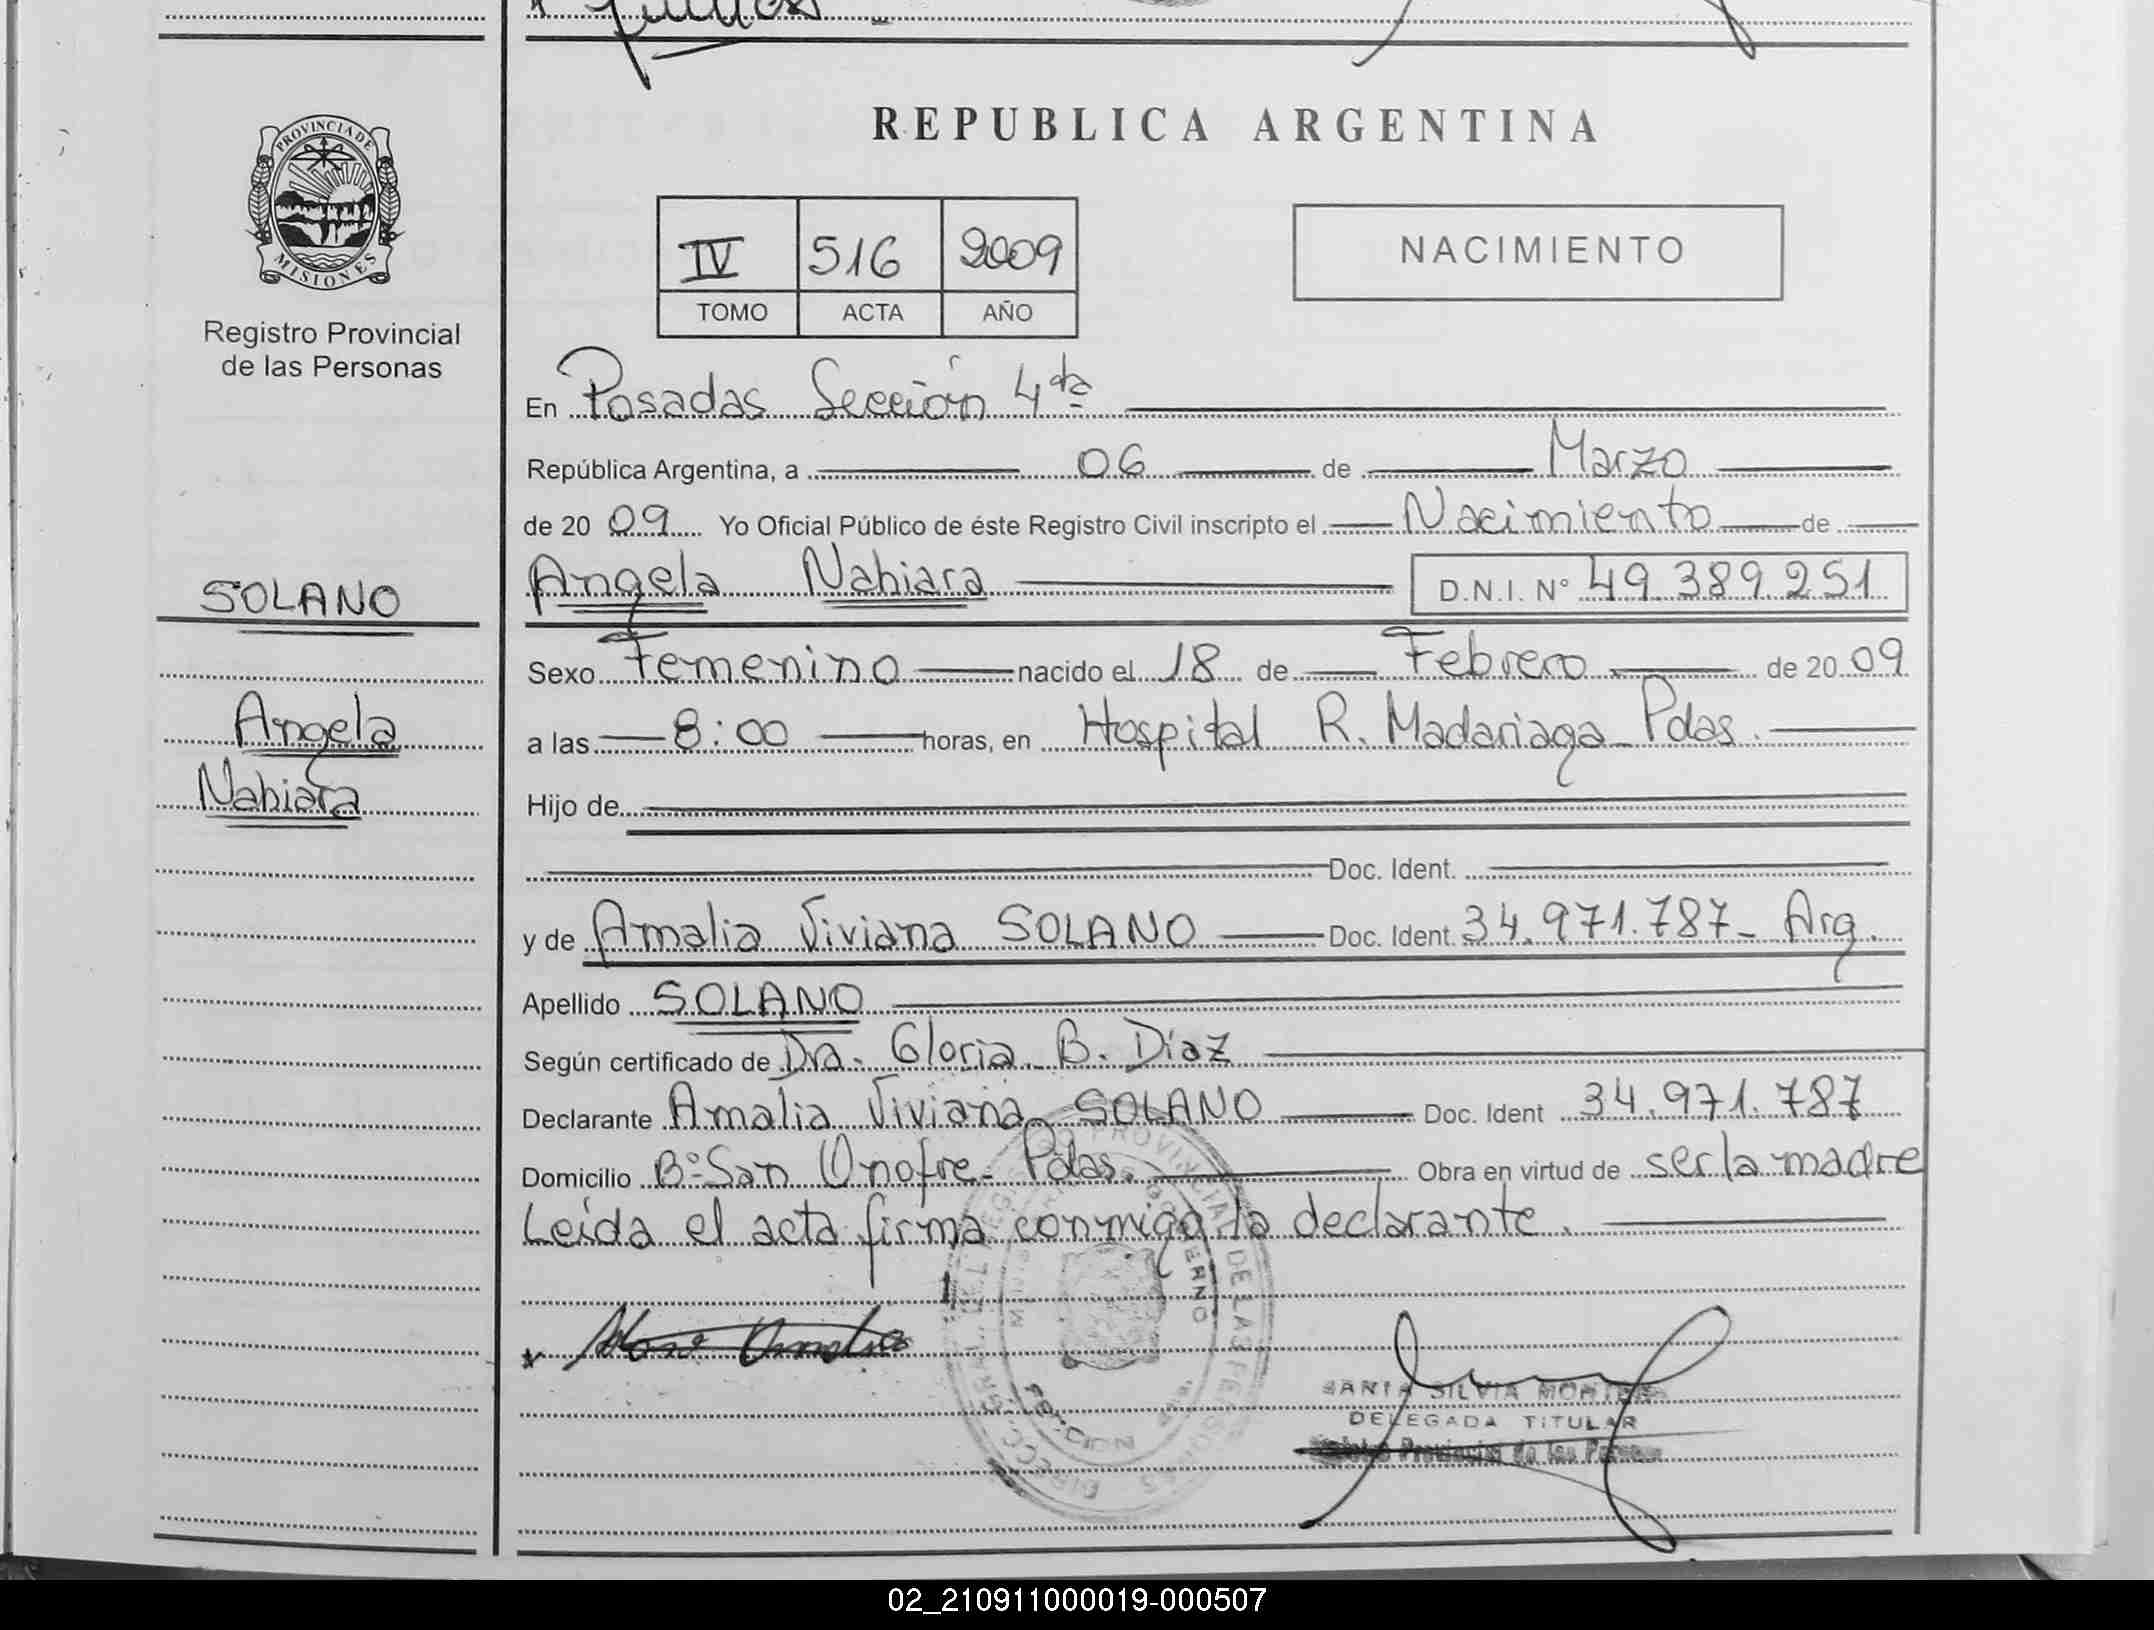 REPUBLICA ARGENTINA
PROVINCIA DE
MISIONES
Registro Provincial
de las Personas
IV 516 2009
TOMO ACTA AÑO
NACIMIENTO
En Posadas Sección 4ta
República Argentina, a 06 de Marzo
de 20 09 Yo Oficial Público de éste Registro Civil inscripto el Nacimiento de
Angela Nahiara D.N.I. N° 49.389.251
SOLANO
Angela
Nahiara
Sexo Femenino nacido el 18 de Febrero de 20 09
a las 8:00 horas, en Hospital R. Madariaga Pdas.
Hijo de
Doc. Ident.
y de Amalia Viviana SOLANO Doc. Ident. 34.971.787- Arg.
Apellido SOLANO
Según certificado de Dra. Gloria B. Díaz
Declarante Amalia Viviana SOLANO Doc. Ident 34.971.787
Domicilio B° San Onofre- Pdas. Obra en virtud de ser la madre
Leída el acta firma conmigo la declarante.
SILVIA
DELEGADA TITULAR
Provincial de las Personas
02_210911000019-000507